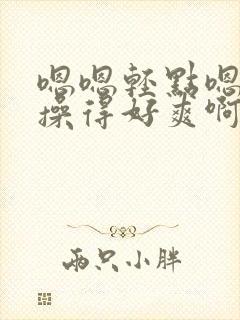 嗯嗯輕點嗯
操得好爽啊
兩只小胖